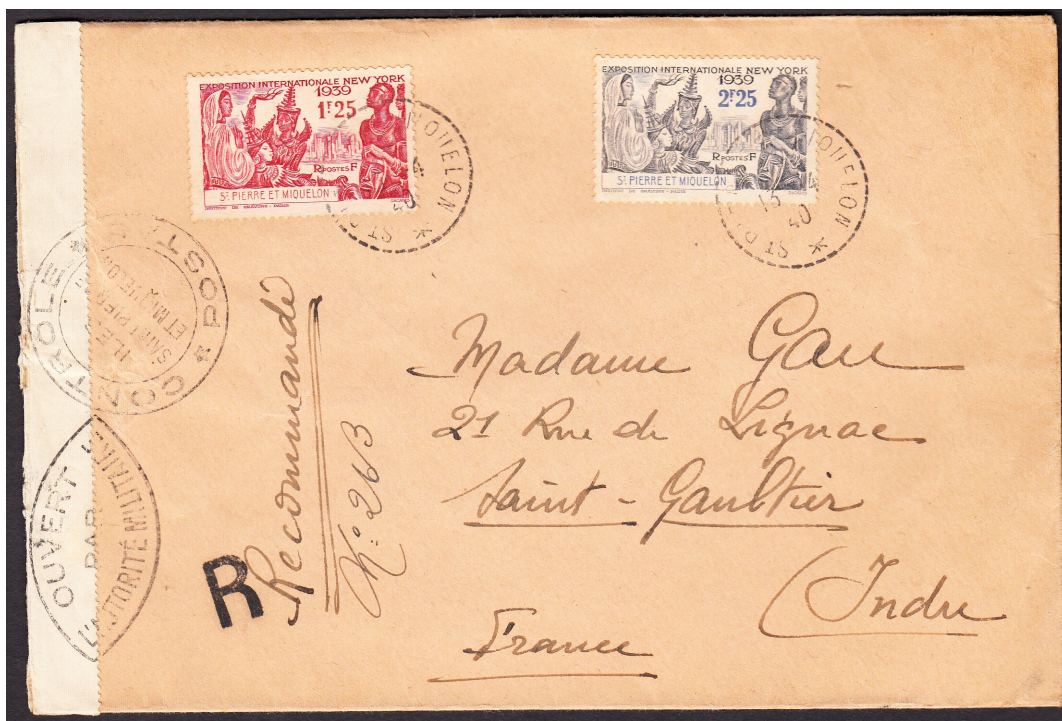 EXPOSITION INTERNATIONALE NEW YORK
1939
1F25
RPOSTESF
ST PIERRE ET MIQUELON
EXPOSITION INTERNATIONALE NEW YORK
1939
2F25
RPOSTESF
ST PIERRE ET MIQUELON
QUELON * ST
40
QUELON * ST PI
13
40
CONTROLE * POSTA
ILES
SAINT PIER
ET MIQUELO
OUVERT
PAR
L'AUTORITÉ MILITAIRE
R
Recommandé
No 263
Madame Gau
21 Rue de Lignac
Saint-Gaultier
(Indre
France